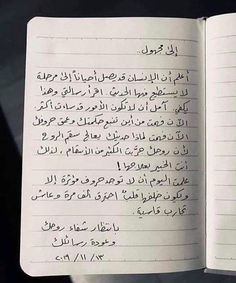 إلى مجهول..
أعلم أن الإنسان قد يصل أحياناً إلى مرحلة
لا يستطيع فيها الحديث. اقرأ رسالتي وهذا
يكفي. آمل أن لا تكون الأمور قد ساءت أكثر.
الآن فهمت من أين تنبع حكمتك وعمق حروفك
الآن فهمت لماذا حديثك يعالج سقم الروح
لأن روحك جرّبت الكثير من الأسقام، لذلك
أنت الخبير بعلاجها!
علمت اليوم أن لا توجد حروف مؤثرة إلا
وتكون خلفها قلبٌ احترق ألف مرة وعاش
تجارب قاسية.
بانتظار شفاء روحك
وعودة رسائلك
٢٠١٩ / ١١ / ١٣